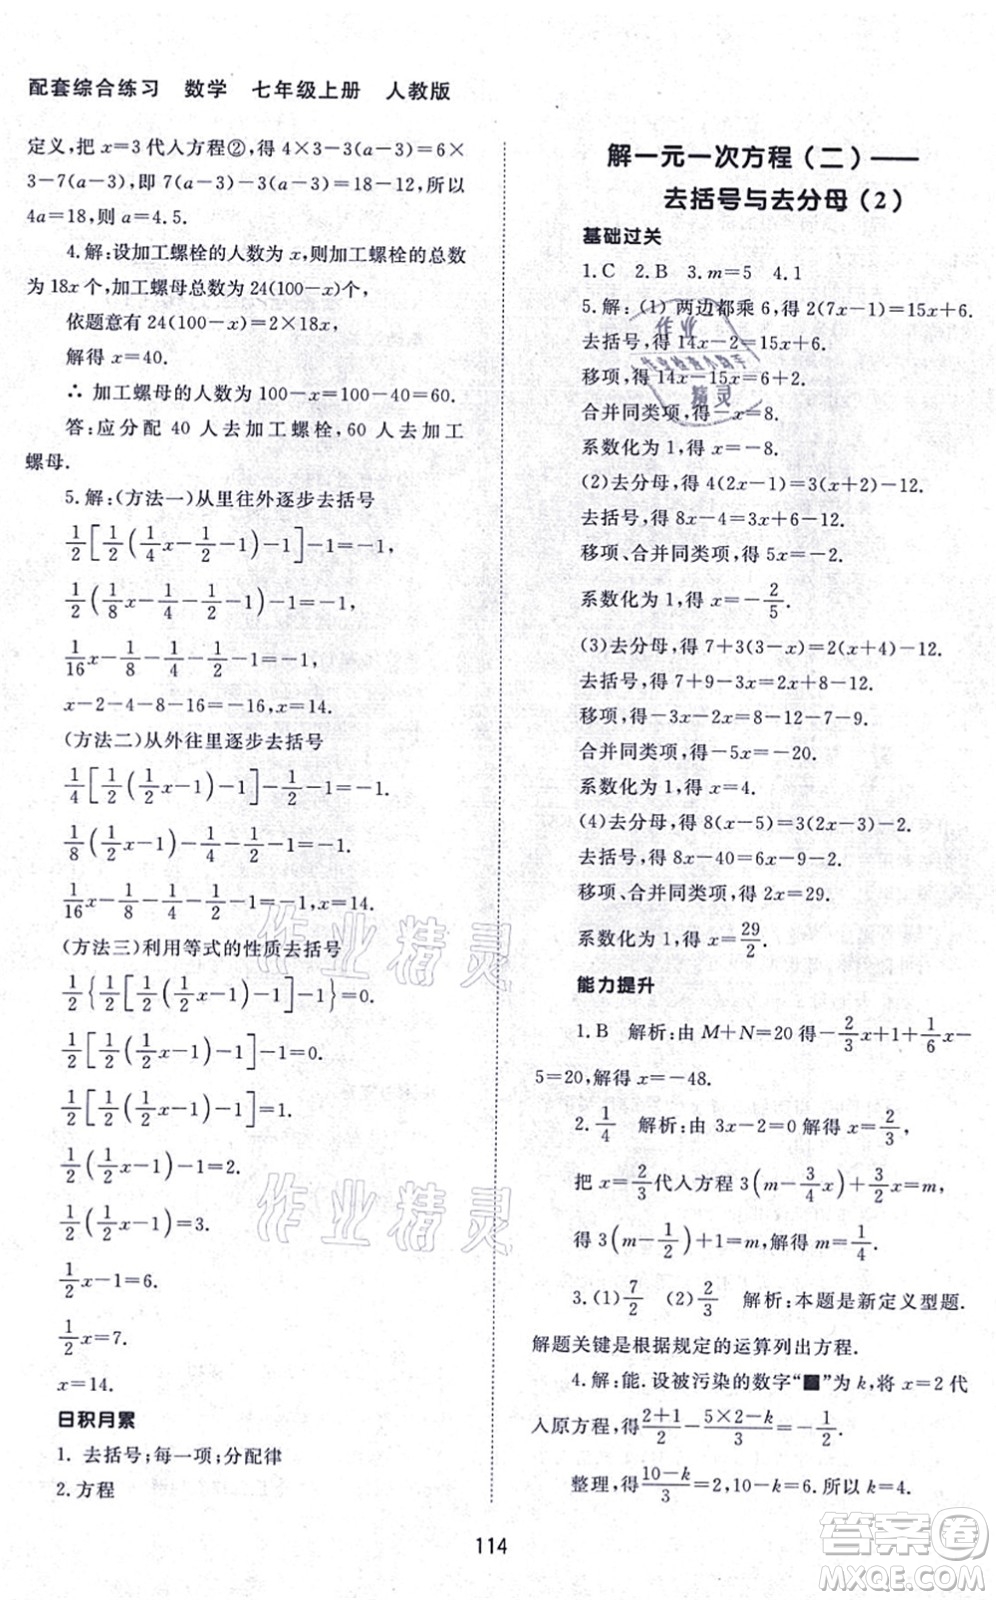 配套综合练习 数学 七年级上册 人教版
定义,把 x=3 代入方程②,得 4×3-3(a-3)=6×
3-7(a-3),即 7(a-3)-3(a-3)=18-12,所以
4a=18,则 a=4.5.
4.解:设加工螺栓的人数为 x,则加工螺栓的总数
为 18x 个,加工螺母总数为 24(100-x)个,
依题意有 24(100-x)=2×18x,
解得 x=40.
∴ 加工螺母的人数为 100-x=100-40=60.
答:应分配 40 人去加工螺栓,60 人去加工
螺母.
5.解:(方法一)从里往外逐步去括号
1/2[1/2(1/4x-1/2-1)-1]-1=-1,
1/2(1/8x-1/4-1/2-1)-1=-1,
1/16x-1/8-1/4-1/2-1=-1,
x-2-4-8-16=-16,x=14.
(方法二)从外往里逐步去括号
1/4[1/2(1/2x-1)-1]-1/2-1=-1.
1/8(1/2x-1)-1/4-1/2-1=-1.
1/16x-1/8-1/4-1/2-1=-1,x=14.
(方法三)利用等式的性质去括号
1/2{1/2[1/2(1/2x-1)-1]-1}=0.
1/2[1/2(1/2x-1)-1]-1=0.
1/2[1/2(1/2x-1)-1]=1.
1/2(1/2x-1)-1=2.
1/2(1/2x-1)=3.
1/2x-1=6.
1/2x=7.
x=14.
日积月累
1. 去括号;每一项;分配律
2.方程
解一元一次方程(二)——
去括号与去分母(2)
基础过关
1.C 2.B 3.m=5 4.1
5.解:(1) 两边都乘 6,得 2(7x-1)=15x+6.
去括号,得 14x-2=15x+6.
移项,得 14x-15x=6+2.
合并同类项,得-x=8.
系数化为 1,得 x=-8.
(2)去分母,得 4(2x-1)=3(x+2)-12.
去括号,得 8x-4=3x+6-12.
移项、合并同类项,得 5x=-2.
系数化为 1,得 x=-2/5.
(3)去分母,得 7+3(3-x)=2(x+4)-12.
去括号,得 7+9-3x=2x+8-12.
移项,得-3x-2x=8-12-7-9.
合并同类项,得-5x=-20.
系数化为 1,得 x=4.
(4)去分母,得 8(x-5)=3(2x-3)-2.
去括号,得 8x-40=6x-9-2.
移项、合并同类项,得 2x=29.
系数化为 1,得 x=29/2.
能力提升
1.B 解析:由 M+N=20 得-2/3x+1+1/6x-
5=20,解得 x=-48.
2.1/4 解析:由 3x-2=0 解得 x=2/3,
把 x=2/3代入方程 3(m-3/4x)+3/2x=m,
得 3(m-1/2)+1=m,解得 m=1/4.
3.(1)7/2 (2)2/3 解析:本题是新定义型题.
解题关键是根据规定的运算列出方程.
4.解:能. 设被污染的数字“■”为 k,将 x=2 代
入原方程,得(2+1)/2-(5×2-k)/3=-1/2,
整理,得(10-k)/3=2,10-k=6. 所以 k=4.
114
作业精灵
作业检查小助手
作业精灵
作业精灵
答案圈
MXQE.COM